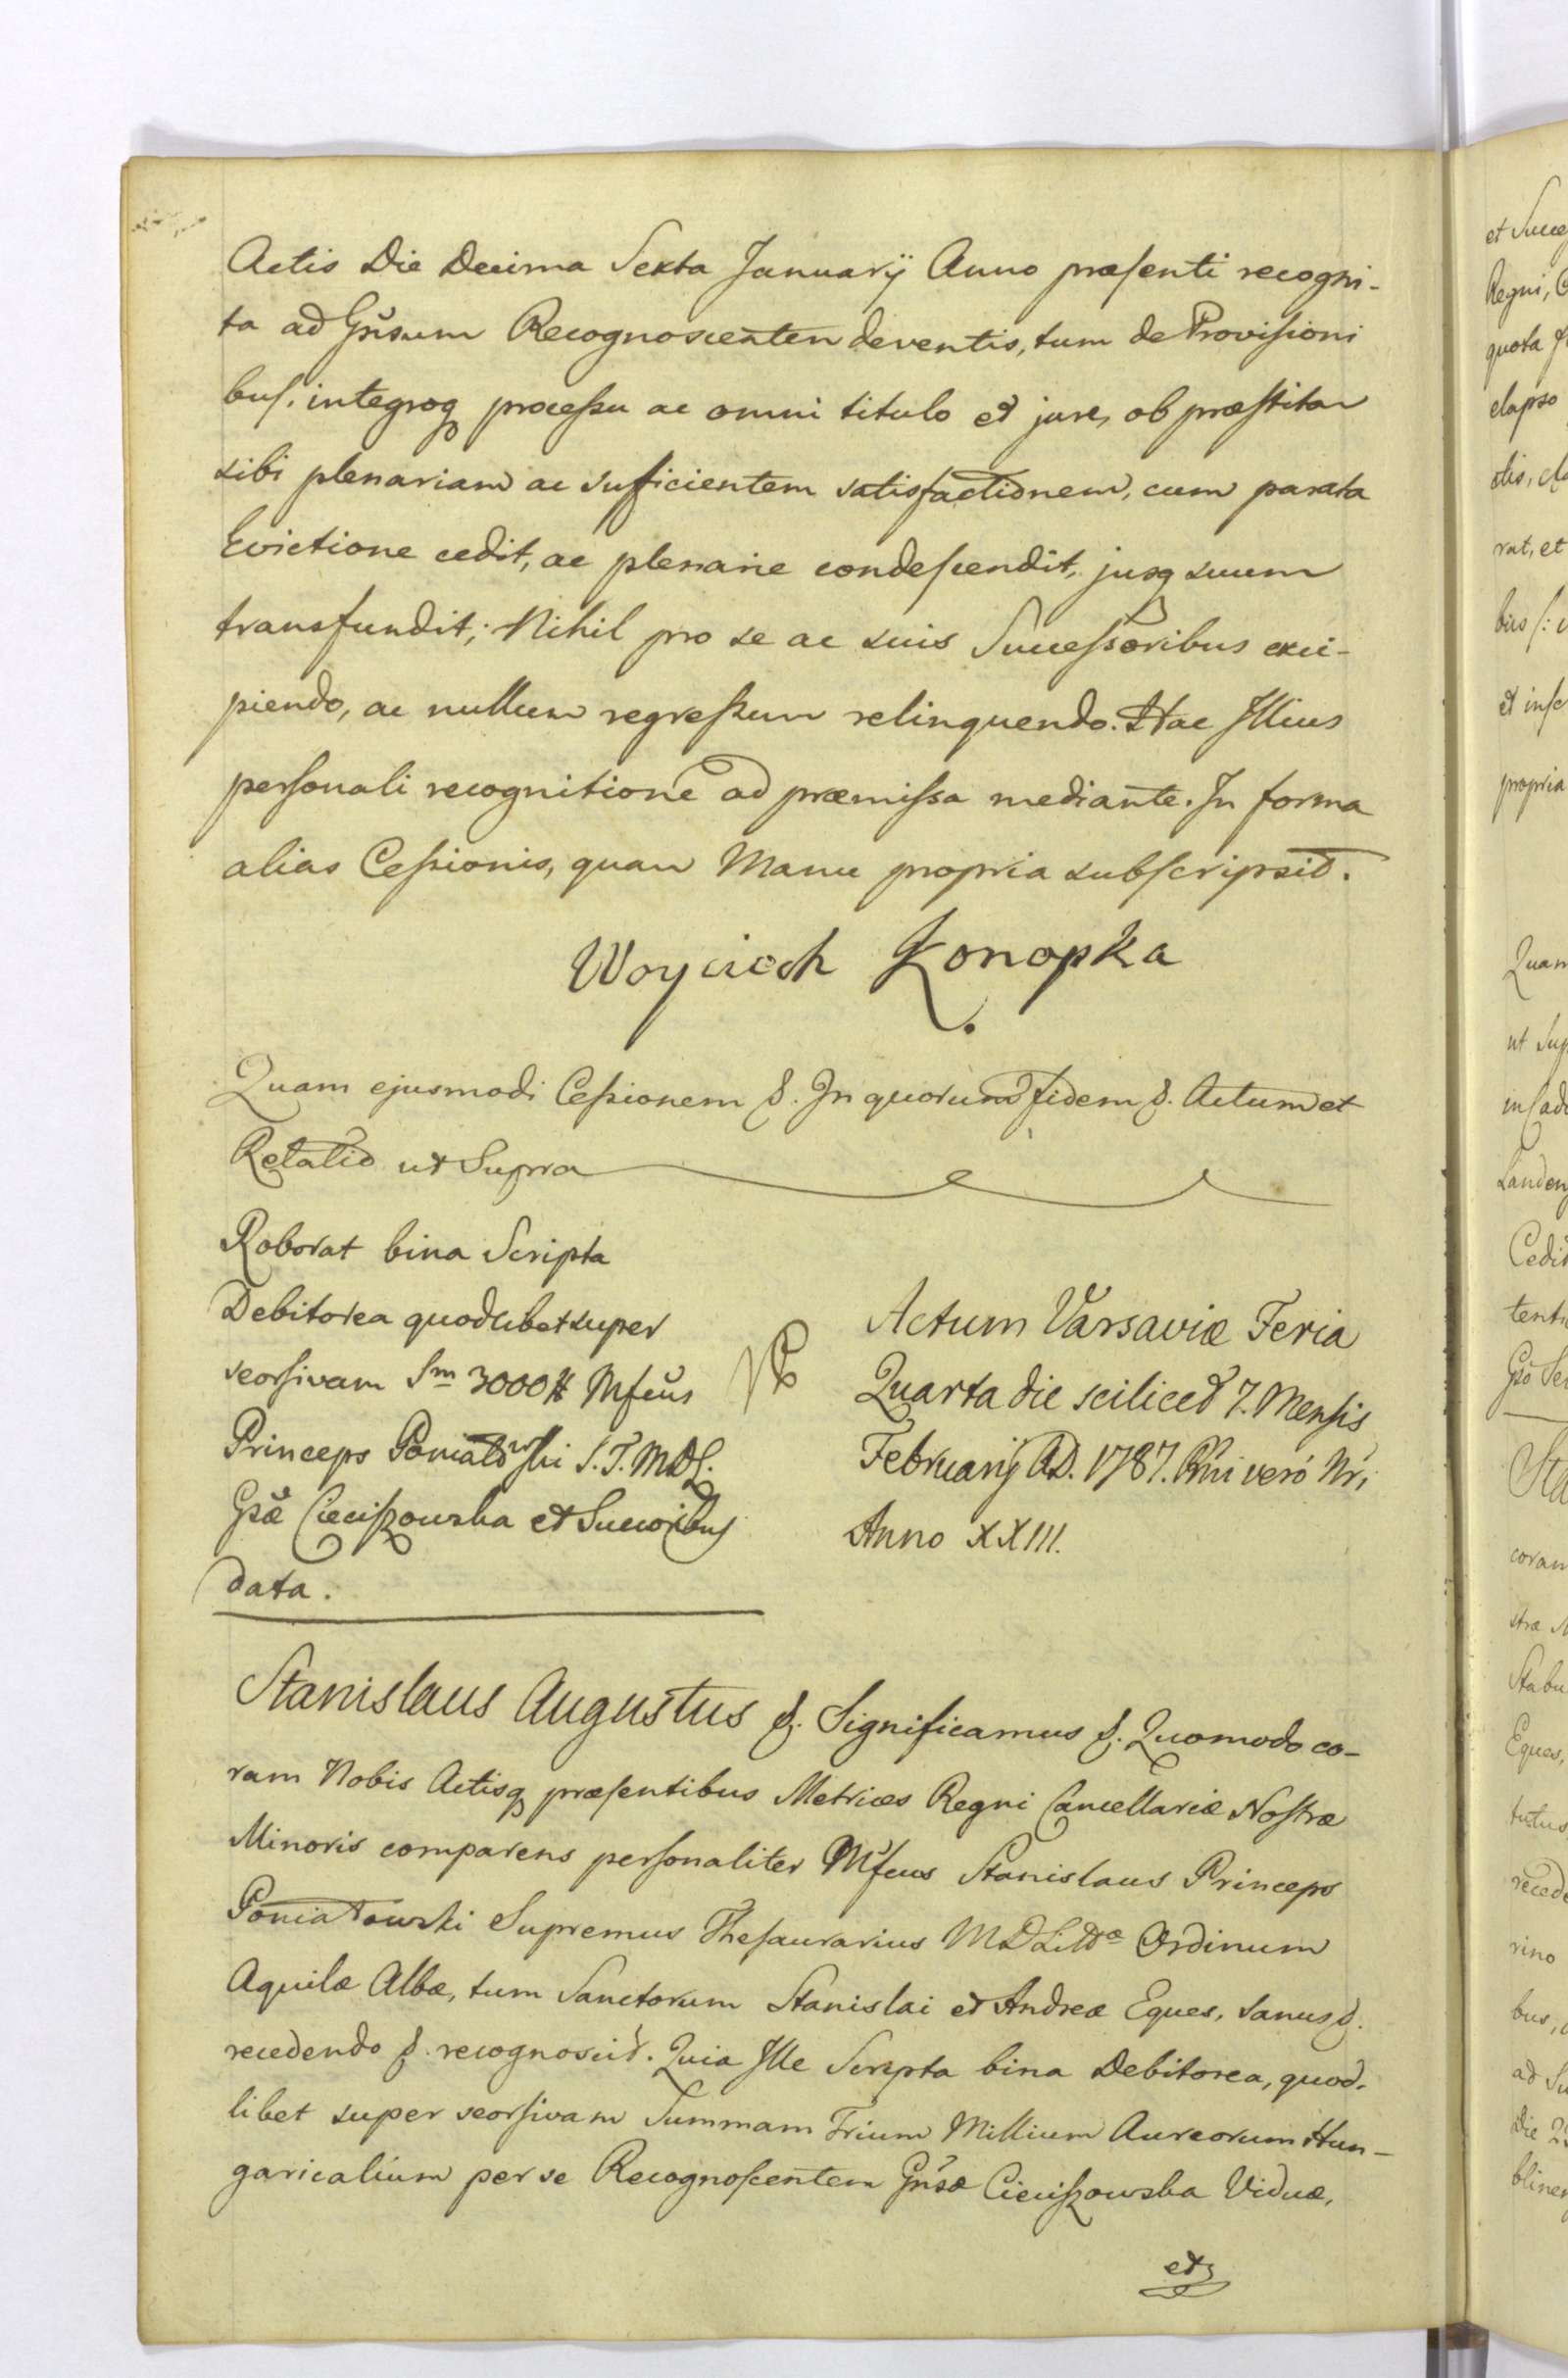 Actis Die Decima Sexta Januarÿ Anno præsenti recogni-
ta ad Gn̄sum Recognoscenten deventis, tum de Provisioni
bus, integroq processu ac omni titulo et jure, ob præstitam
sibi plenariam ac sufficientem satisfactionem, cum parata
Evictione cedit, ac plenarie condescendit, jusq suum
transfundit; Nihil pro se ac suis Successoribus exci-
piendo, ac nullum regressum relinquendo. Hac Illius
personali recognitione ad præmissa mediante. In forma
alias Cessionis, quam Manu propria subscripsit.
Woyciech Konopka
Quam ejusmodi Cessionem &. In quorum fidem &. Actum et
Relatio ut Supra
Roborat bina Scripta
Debitorea quodlibet super
seorsivam Sm 3000 # Mfcus
Princeps Poniatowski S. T. MDL.
Gsæ Cieciszowska et Succoribus
data.
Actum Varsaviæ Feria
Quarta die scilicet 7. Mensis
Februarÿ AD. 1787. Rni veró Nri
Anno XXIII.
Stanislaus Augustus &. Significamus &. Quomodo co-
ram Nobis Actisq præsentibus Metrices Regni Cancellariæ Nostræ
Minoris comparens personaliter Mfcus Stanislaus Princeps
Poniatowski Supremus Thesaurarius MDLittæ Ordinum
Aquilæ Albæ, tum Sanctorum Stanislai et Andreæ Eques, sanus &.
recedendo &. recognovit. Quia Ille Scripta bina Debitorea, quod-
libet super seorsivam Summam Trium Millium Aureorum Hun-
garicalium per se Recognoscentem Gnsæ Cieciszowska Viduæ,
et
et Succe
Regni, C
quota
elapso
rat, et
et infe
propria
Quam
ut Sup
in Cad
Landen
Cedit
tenti
Sta
coram
Stabu
Eques,
recede
rino
bus,
ad Su
Die 2